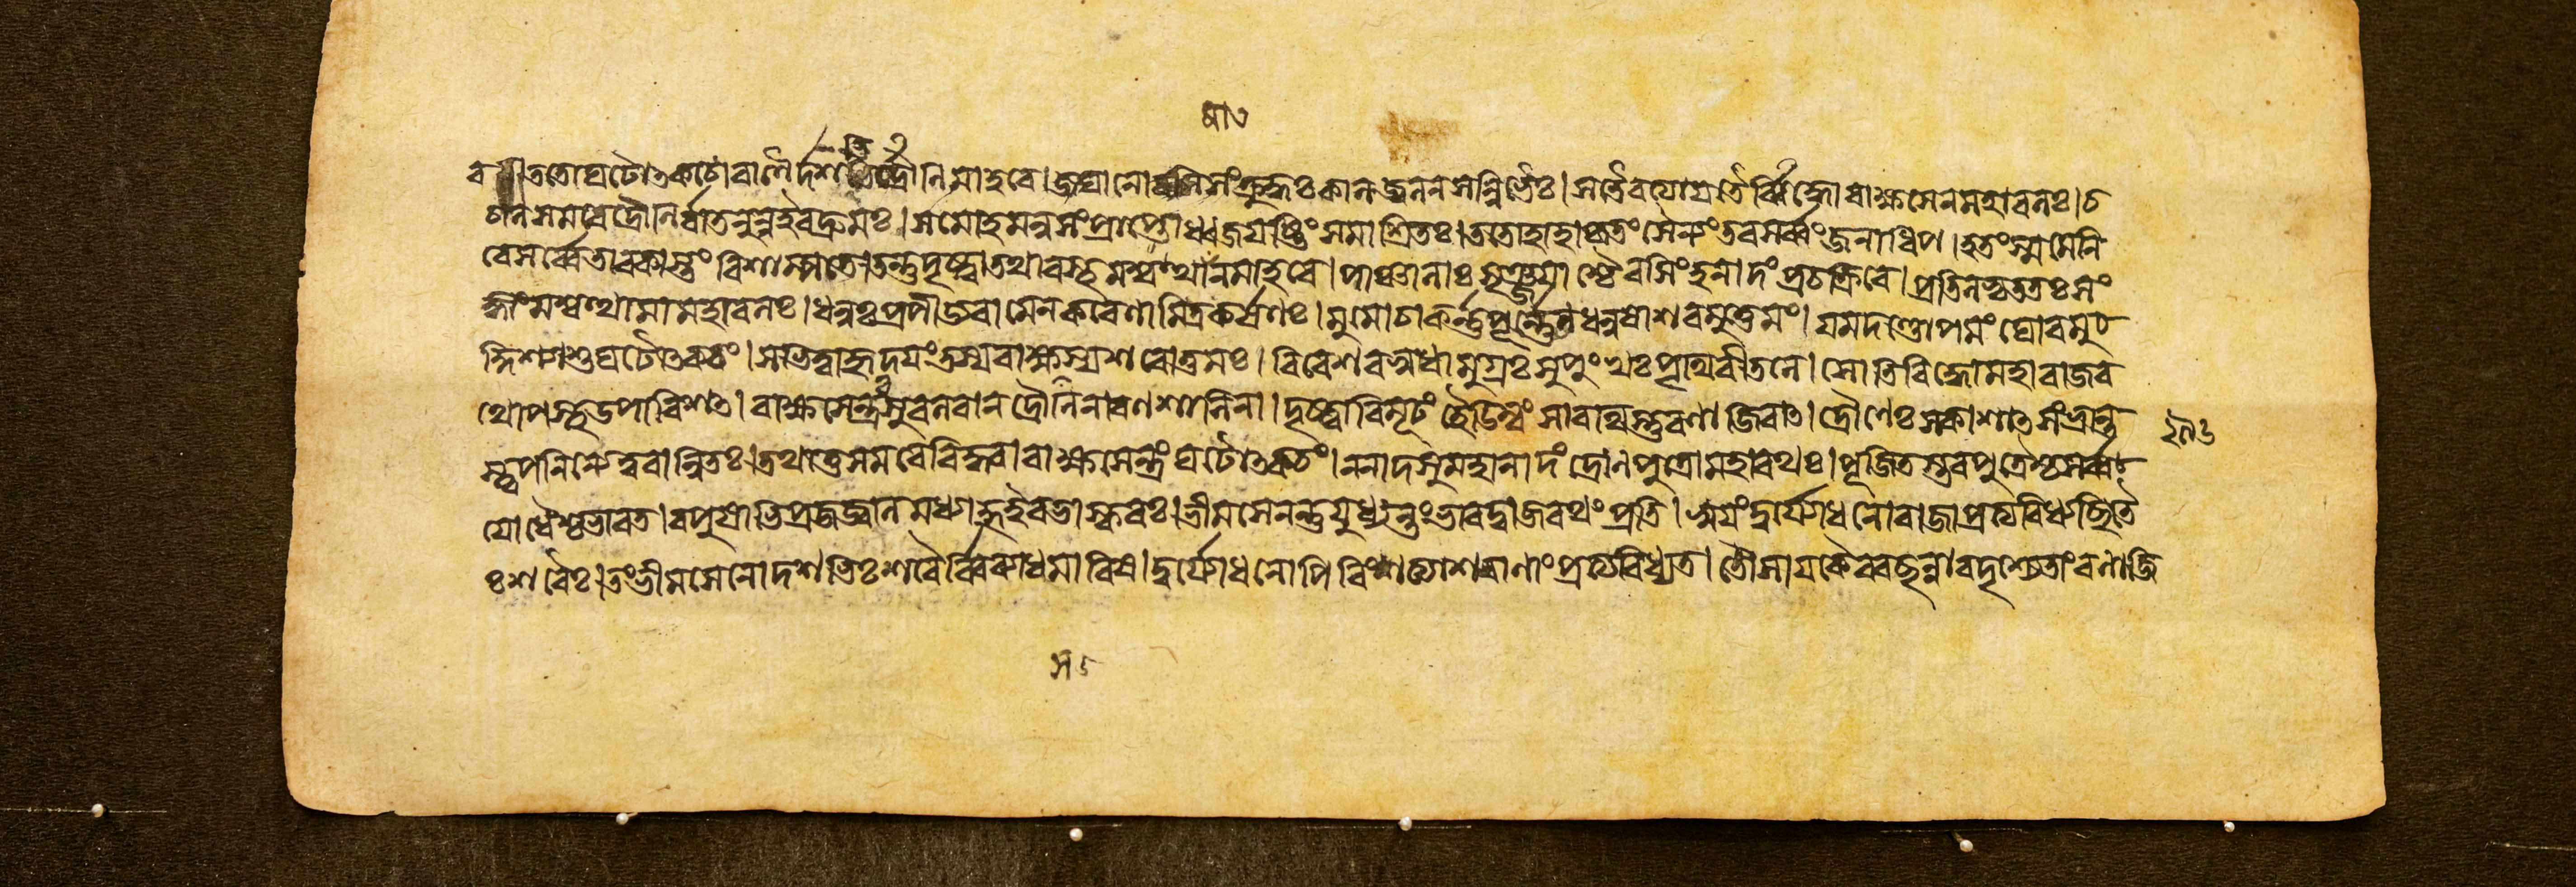 ততো ঘটোৎকচো বাণৈর্দশভির্দ্রৌনিমাহবে। জঘানোরসি সংক্রুদ্ধঃ কালজ্বলনসন্নিভৈঃ। স তৈরভ্যায়তৈর্ব্বিদ্ধো রাক্ষসেন মহাবলঃ। চ
চাল সমরে দ্রৌনির্বাতনুন্ন ইব দ্রুমঃ। স মোহমনুসংপ্রাপ্তো ধ্বজযষ্টিং সমাশ্রিতঃ। ততো হাহাকৃতং সৈন্যং তব সর্ব্বং জনাধিপ। হতং স্ম মেনি
রে সর্ব্বে তাবকাস্তং বিশাম্পতে। তন্তু দৃষ্ট্বা তথাবস্থমশ্বত্থামানমাহবে। পাঞ্চালাঃ সৃঞ্জয়াশ্চৈব সিংহনাদং প্রচক্রিরে। প্রতিলভ্য ততঃ সং
জ্ঞামশ্বত্থামা মহাবলঃ। ধনুঃ প্রপীড্য বামেন করেণামিত্রকর্ষণঃ। মুমোচাকর্ণপূর্ণেন ধনুষা শরমুত্তমং। যমদণ্ডোপমং ঘোরমু
দ্দিশ্যাশু ঘটোৎকচং। স ভিত্বা হৃদয়ং তস্য রাক্ষসস্য শরোত্তমঃ। বিবেশ বসুধামুগ্রঃ সুপুংখঃ পৃথিবীতলে। সোতিবিদ্ধো মহারাজ র
থোপস্থ উপাবিশৎ। রাক্ষসেন্দ্রঃ সুবলবান দ্রৌনিনা রণশালিনা। দৃষ্ট্বা বিমূঢং হৈডিম্বং সারথিস্তু রণাজিরাৎ। দ্রৌণেঃ সকাশাৎ সংভ্রান্ত
স্ত্বপনিন্যে ত্বরান্বিতঃ। তথা তু সমরে বিদ্ধ্বা রাক্ষসেন্দ্রং ঘটোৎকচং। ননাদ সুমহানাদং দ্রোণপুত্রো মহারথঃ। পূজিতস্তব পুত্রৈশ্চ সর্ব্ব
যোধৈশ্চ ভারত। বপুষাতিপ্রজজ্বাল মধ্যাহ্ন ইব ভাস্করঃ। ভীমসেনন্তু যুধ্যন্তং ভারদ্বাজরথং প্রতি। স্বয়ং দুর্য্যোধনো রাজা প্রত্যবিধ্যচ্ছিতৈ
ঃ শরৈঃ। তং ভীমসেনো দশভিঃ শরৈর্ব্বিব্যাধ মারিষ। দুর্য্যোধনোপি বিংশত্যা শরাণাং প্রত্যবিধ্যত। তৌ সায়কৈরবছন্নাবদৃশ্যেতাং রণাজি